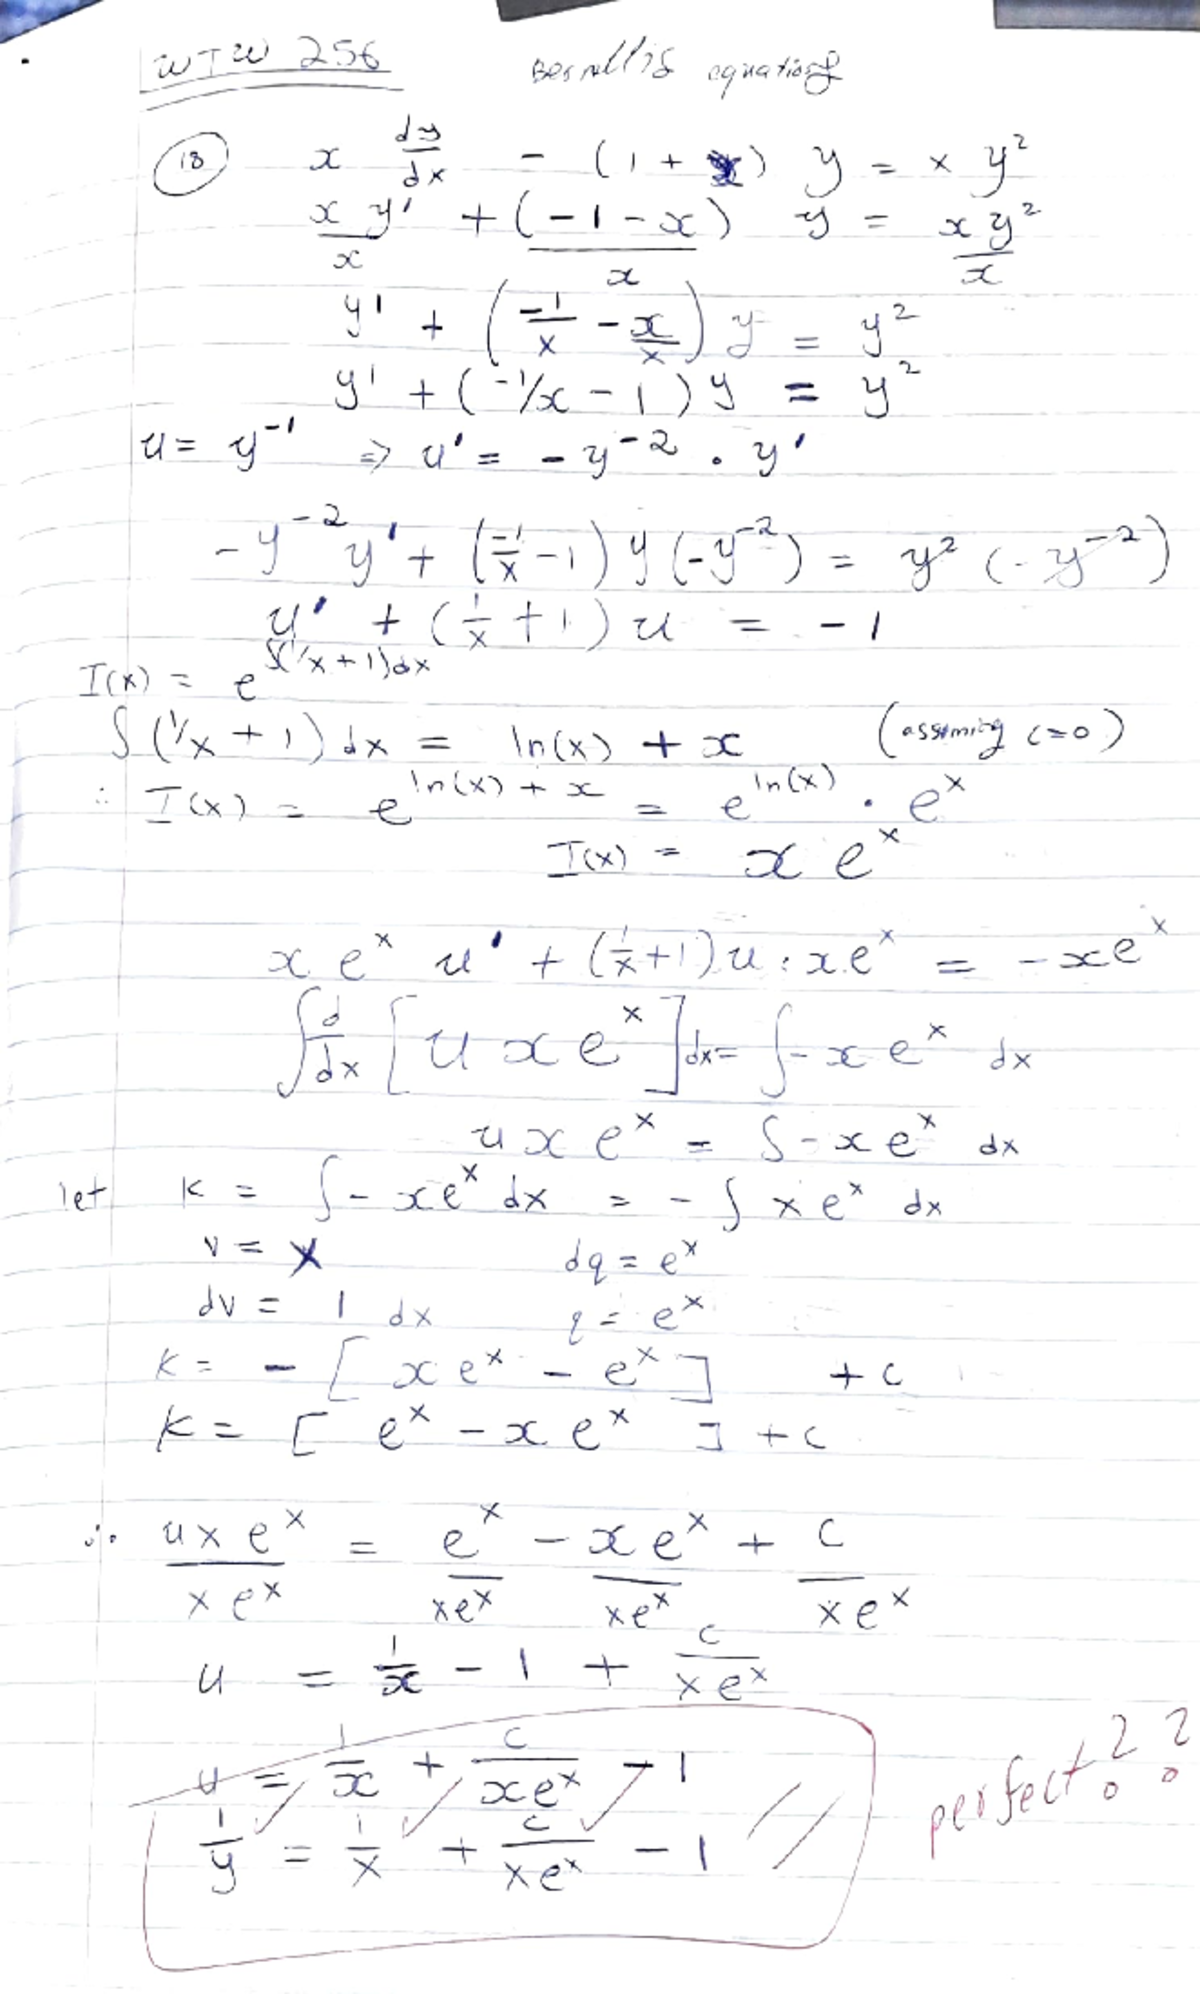 WTW 256 Bernullis equations
(18) x dy/dx - (1 + x) y = x y²
x y'/x + (-1 - x)/x y = x y²/x
y' + (-1/x - x/x) y = y²
y' + (-1/x - 1) y = y²
u = y⁻¹ ⇒ u' = - y⁻² · y'
- y⁻² y' + (-1/x - 1) y (-y⁻²) = y² (- y⁻²)
u' + (1/x + 1) u = - 1
I(x) = e^∫(1/x + 1)dx
∫ (1/x + 1) dx = ln(x) + x (assuming c=0)
∴ I(x) = e^(ln(x) + x) = e^ln(x) · e^x
I(x) = x e^x
x e^x u' + (1/x + 1) u · x e^x = - x e^x
∫ d/dx [ u x e^x ] dx = ∫ - x e^x dx
u x e^x = ∫ - x e^x dx
let k = ∫ - x e^x dx = - ∫ x e^x dx
v = x dq = e^x
dv = 1 dx q = e^x
k = - [ x e^x - e^x ] + c
k = [ e^x - x e^x ] + c
∴ u x e^x / x e^x = e^x / x e^x - x e^x / x e^x + c / x e^x
u = 1/x - 1 + c / x e^x
u = 1/x + c / x e^x - 1
1/y = 1/x + c / x e^x - 1
perfect??